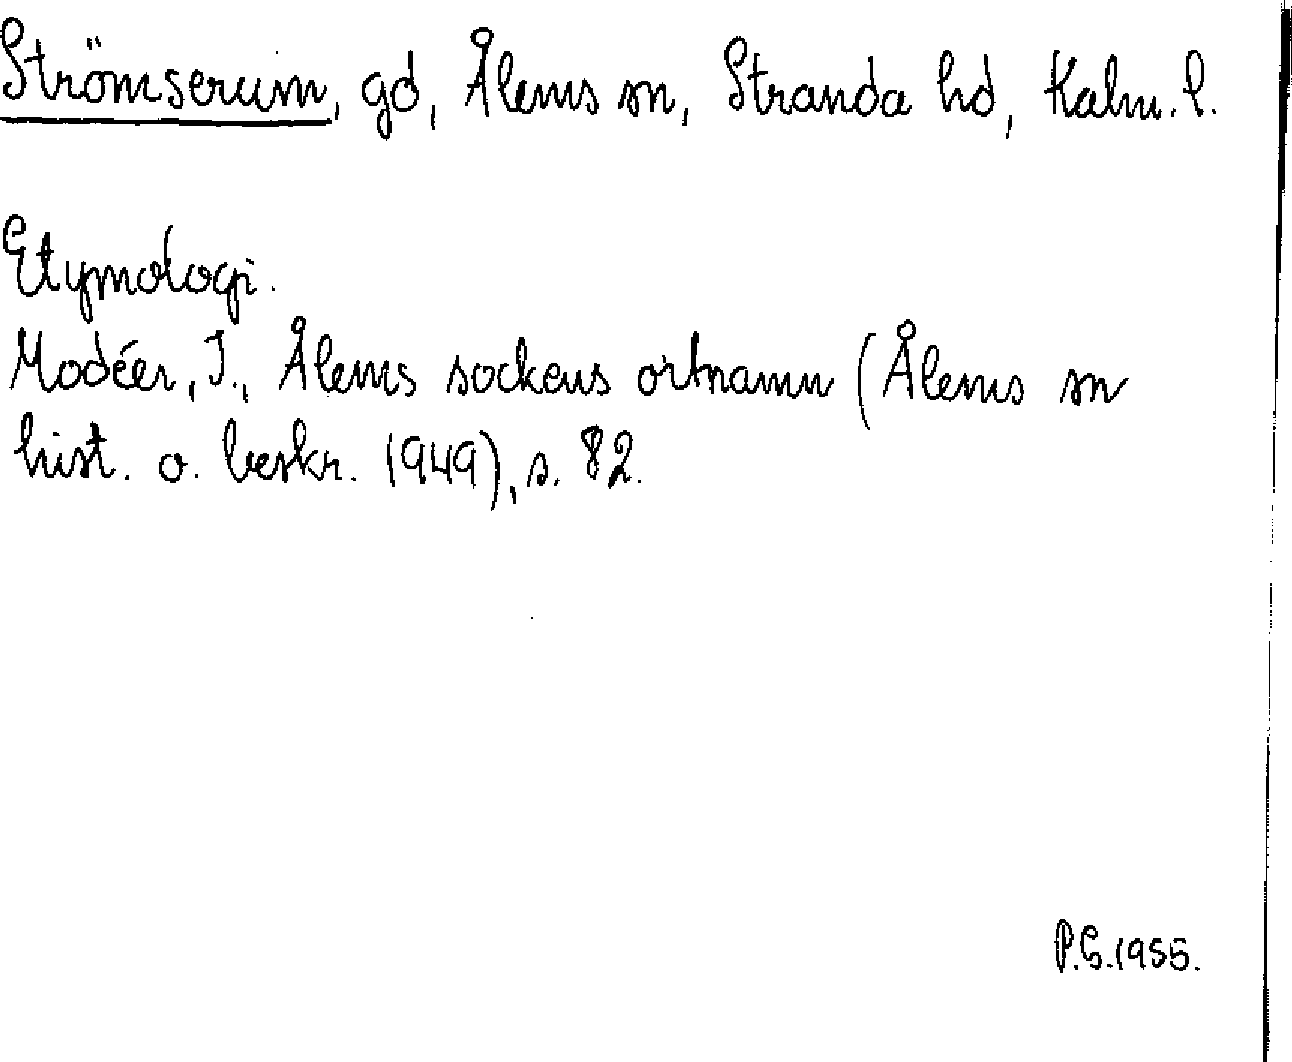 Strömserum, gd, Ålems sn, Stranda hd, Kalm. l.
Etymologi.
Modéer, I., Ålems sockens ortnamn (Ålems sn
hist. o. beskr. 1949), s. 82.
P.G. 1955.